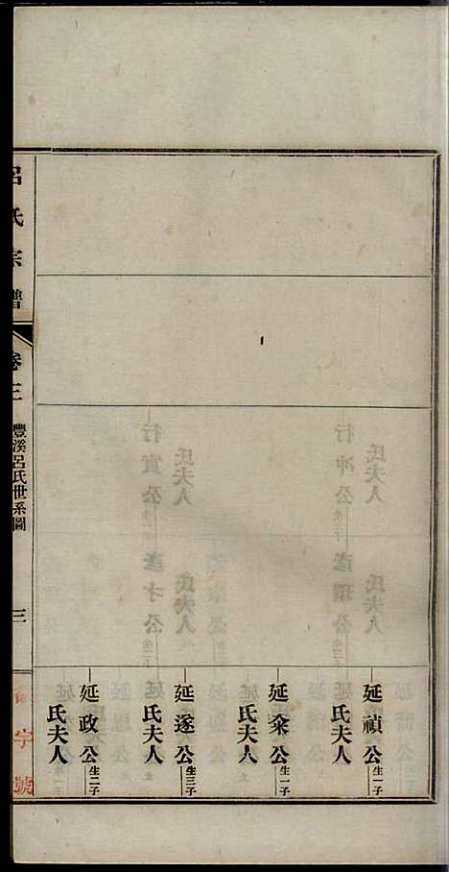 延禎公生一子
氏夫人
延桼公生一子
氏夫人
延遂公生三子
氏夫人
延政公生二子
氏夫人
呂氏宗譜
卷三
豐溪呂氏世系圖
三
字號